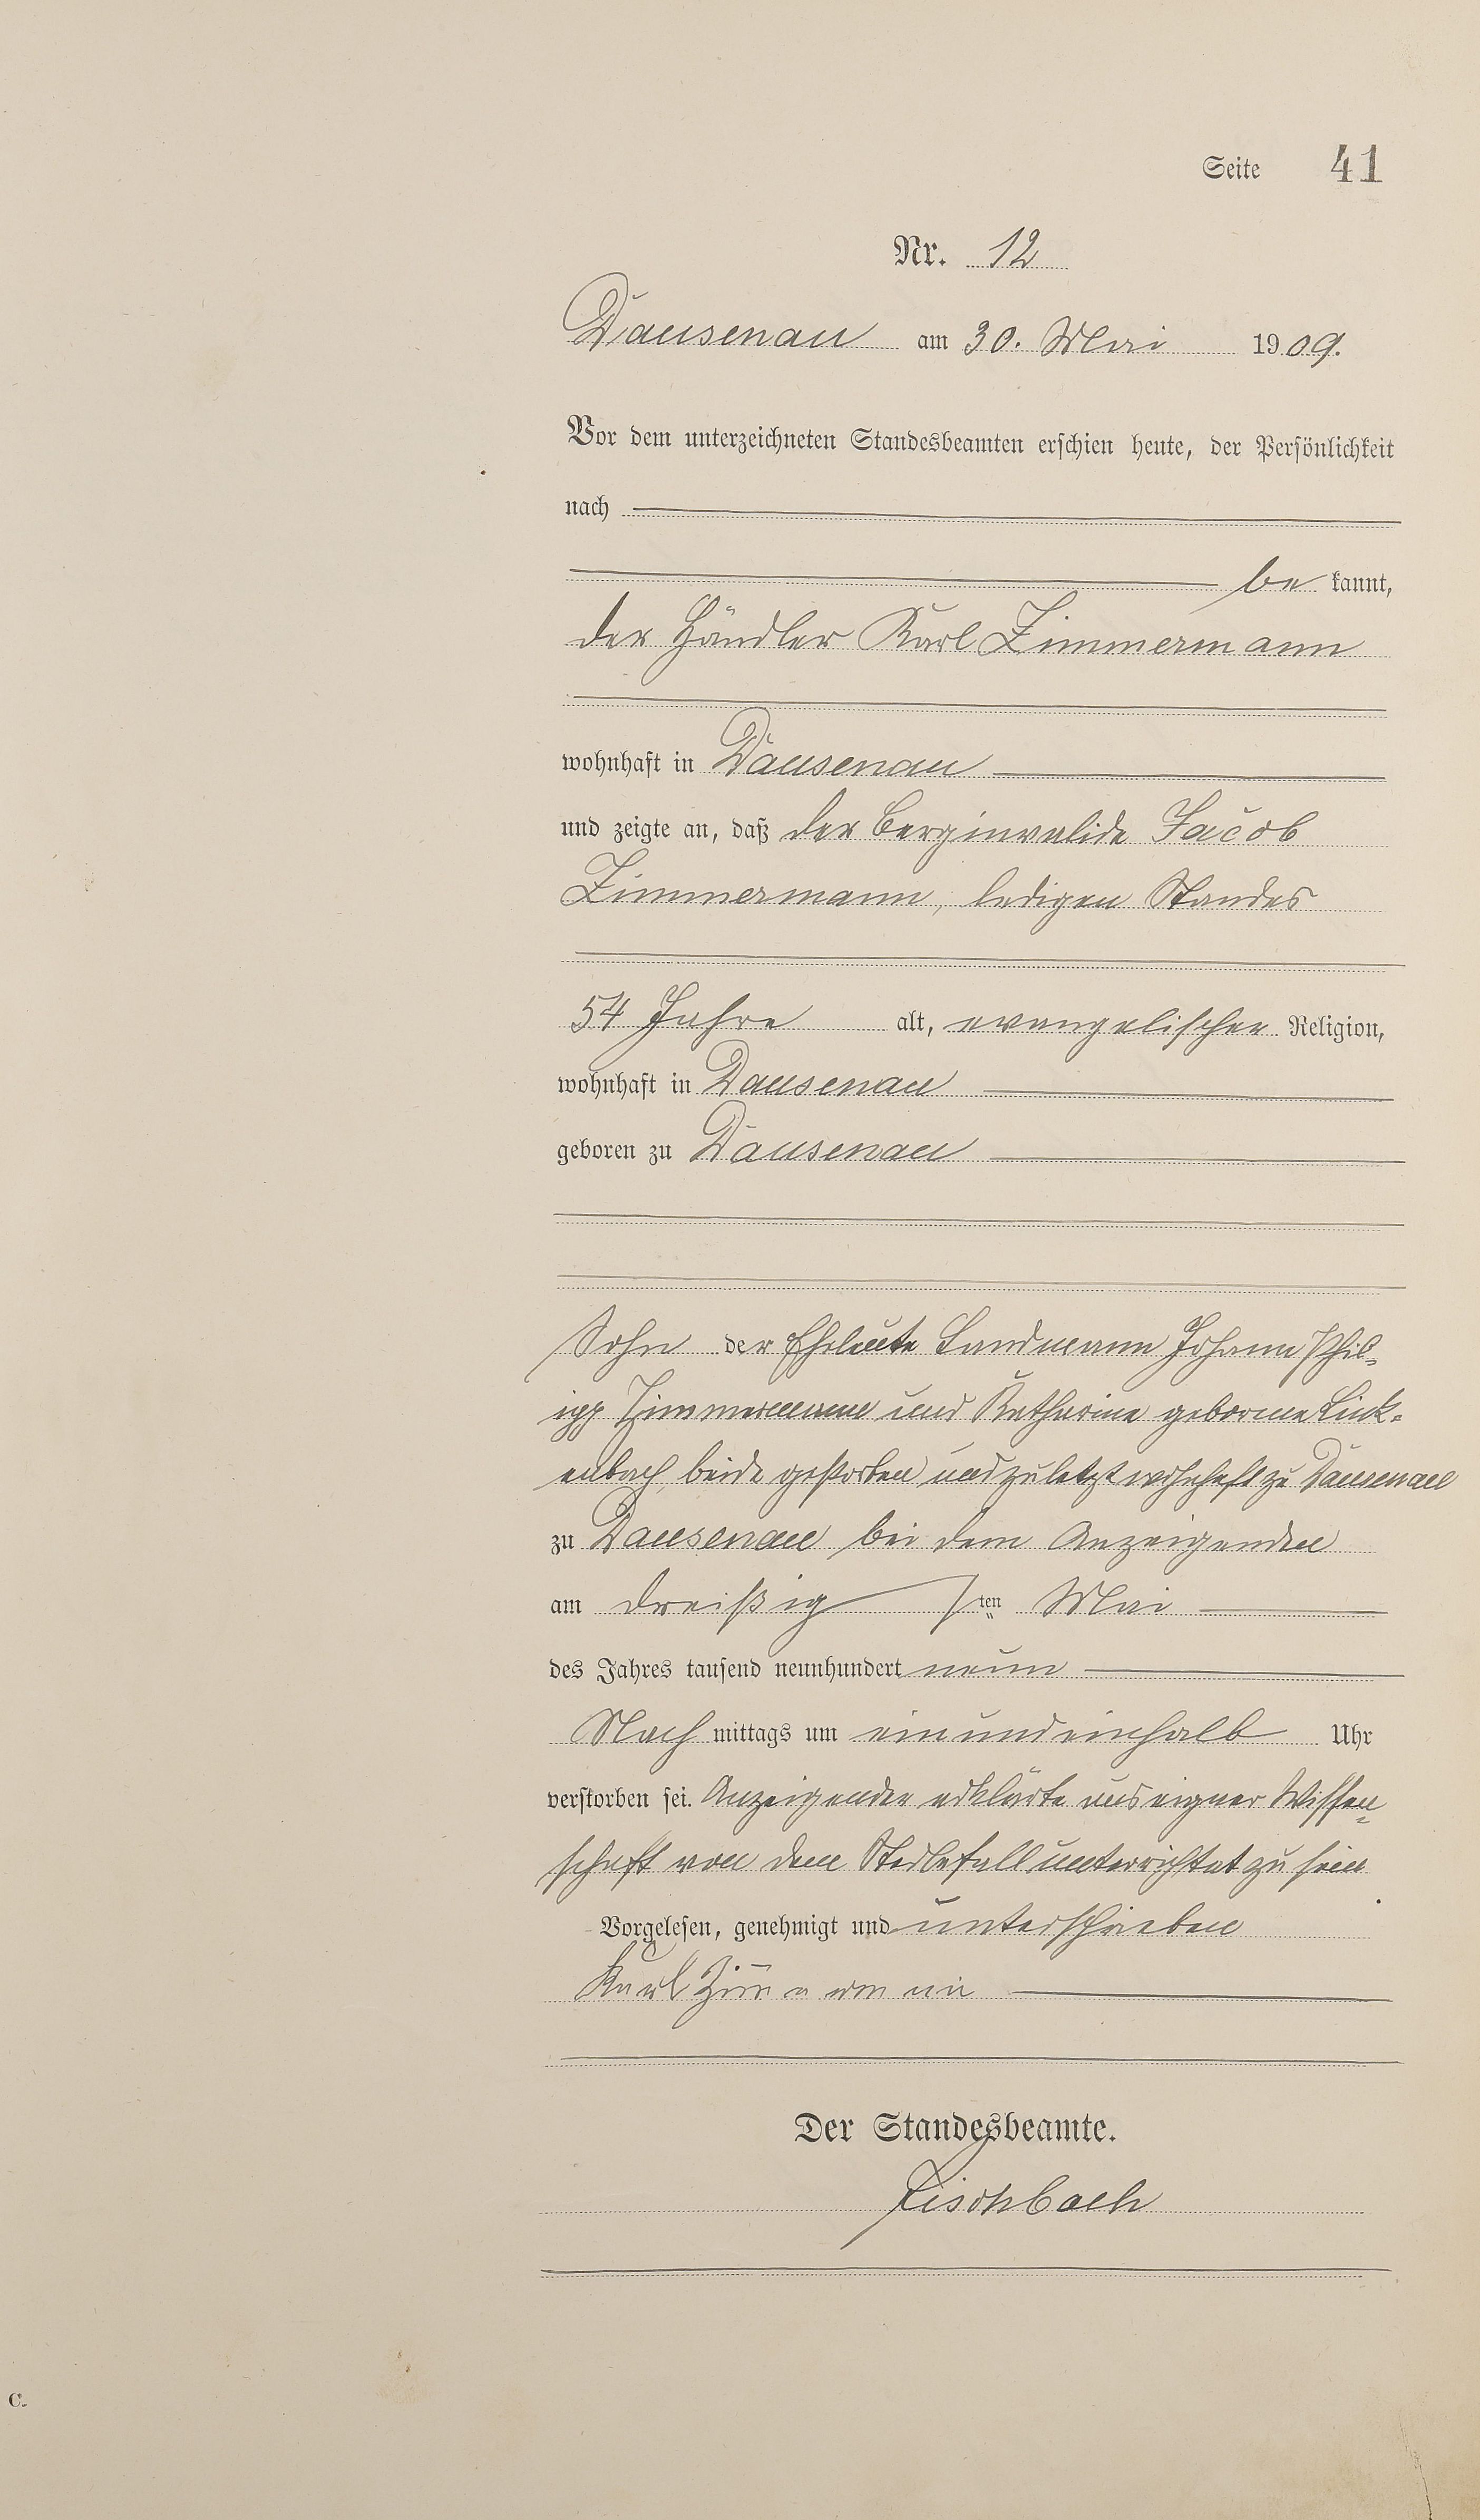 Seite 41
Nr. 12
Dausenau am 30. Mai 1909.
Vor dem unterzeichneten Standesbeamten erschien heute, der Persönlichkeit
nach
be kannt,
der Händler Karl Zimmermann
wohnhaft in Dausenau
und zeigte an, daß der Berginvalide Jacob
Zimmermann, ledigen Standes
54 Jahre alt, evangelischer Religion,
wohnhaft in Dausenau
geboren zu Dausenau
Sohn der Eheleute Landmann Johann Phil-
ipp Zimmermann und Katharine geborne Link-
enbach, beide gestorben und zuletzt wohnhaft zu Dausenau
zu Dausenau bei dem Anzeigenden
am dreißig sten Mai
des Jahres tausend neunhundert neun
Nach mittags um einundeinhalb Uhr
verstorben sei. Anzeigender erklärte aus eigner Wissen-
schaft von dem Sterbefall unterrichtet zu sein
Vorgelesen, genehmigt und unterschrieben
Karl Zimmermann
Der Standesbeamte.
Fischbach
C.